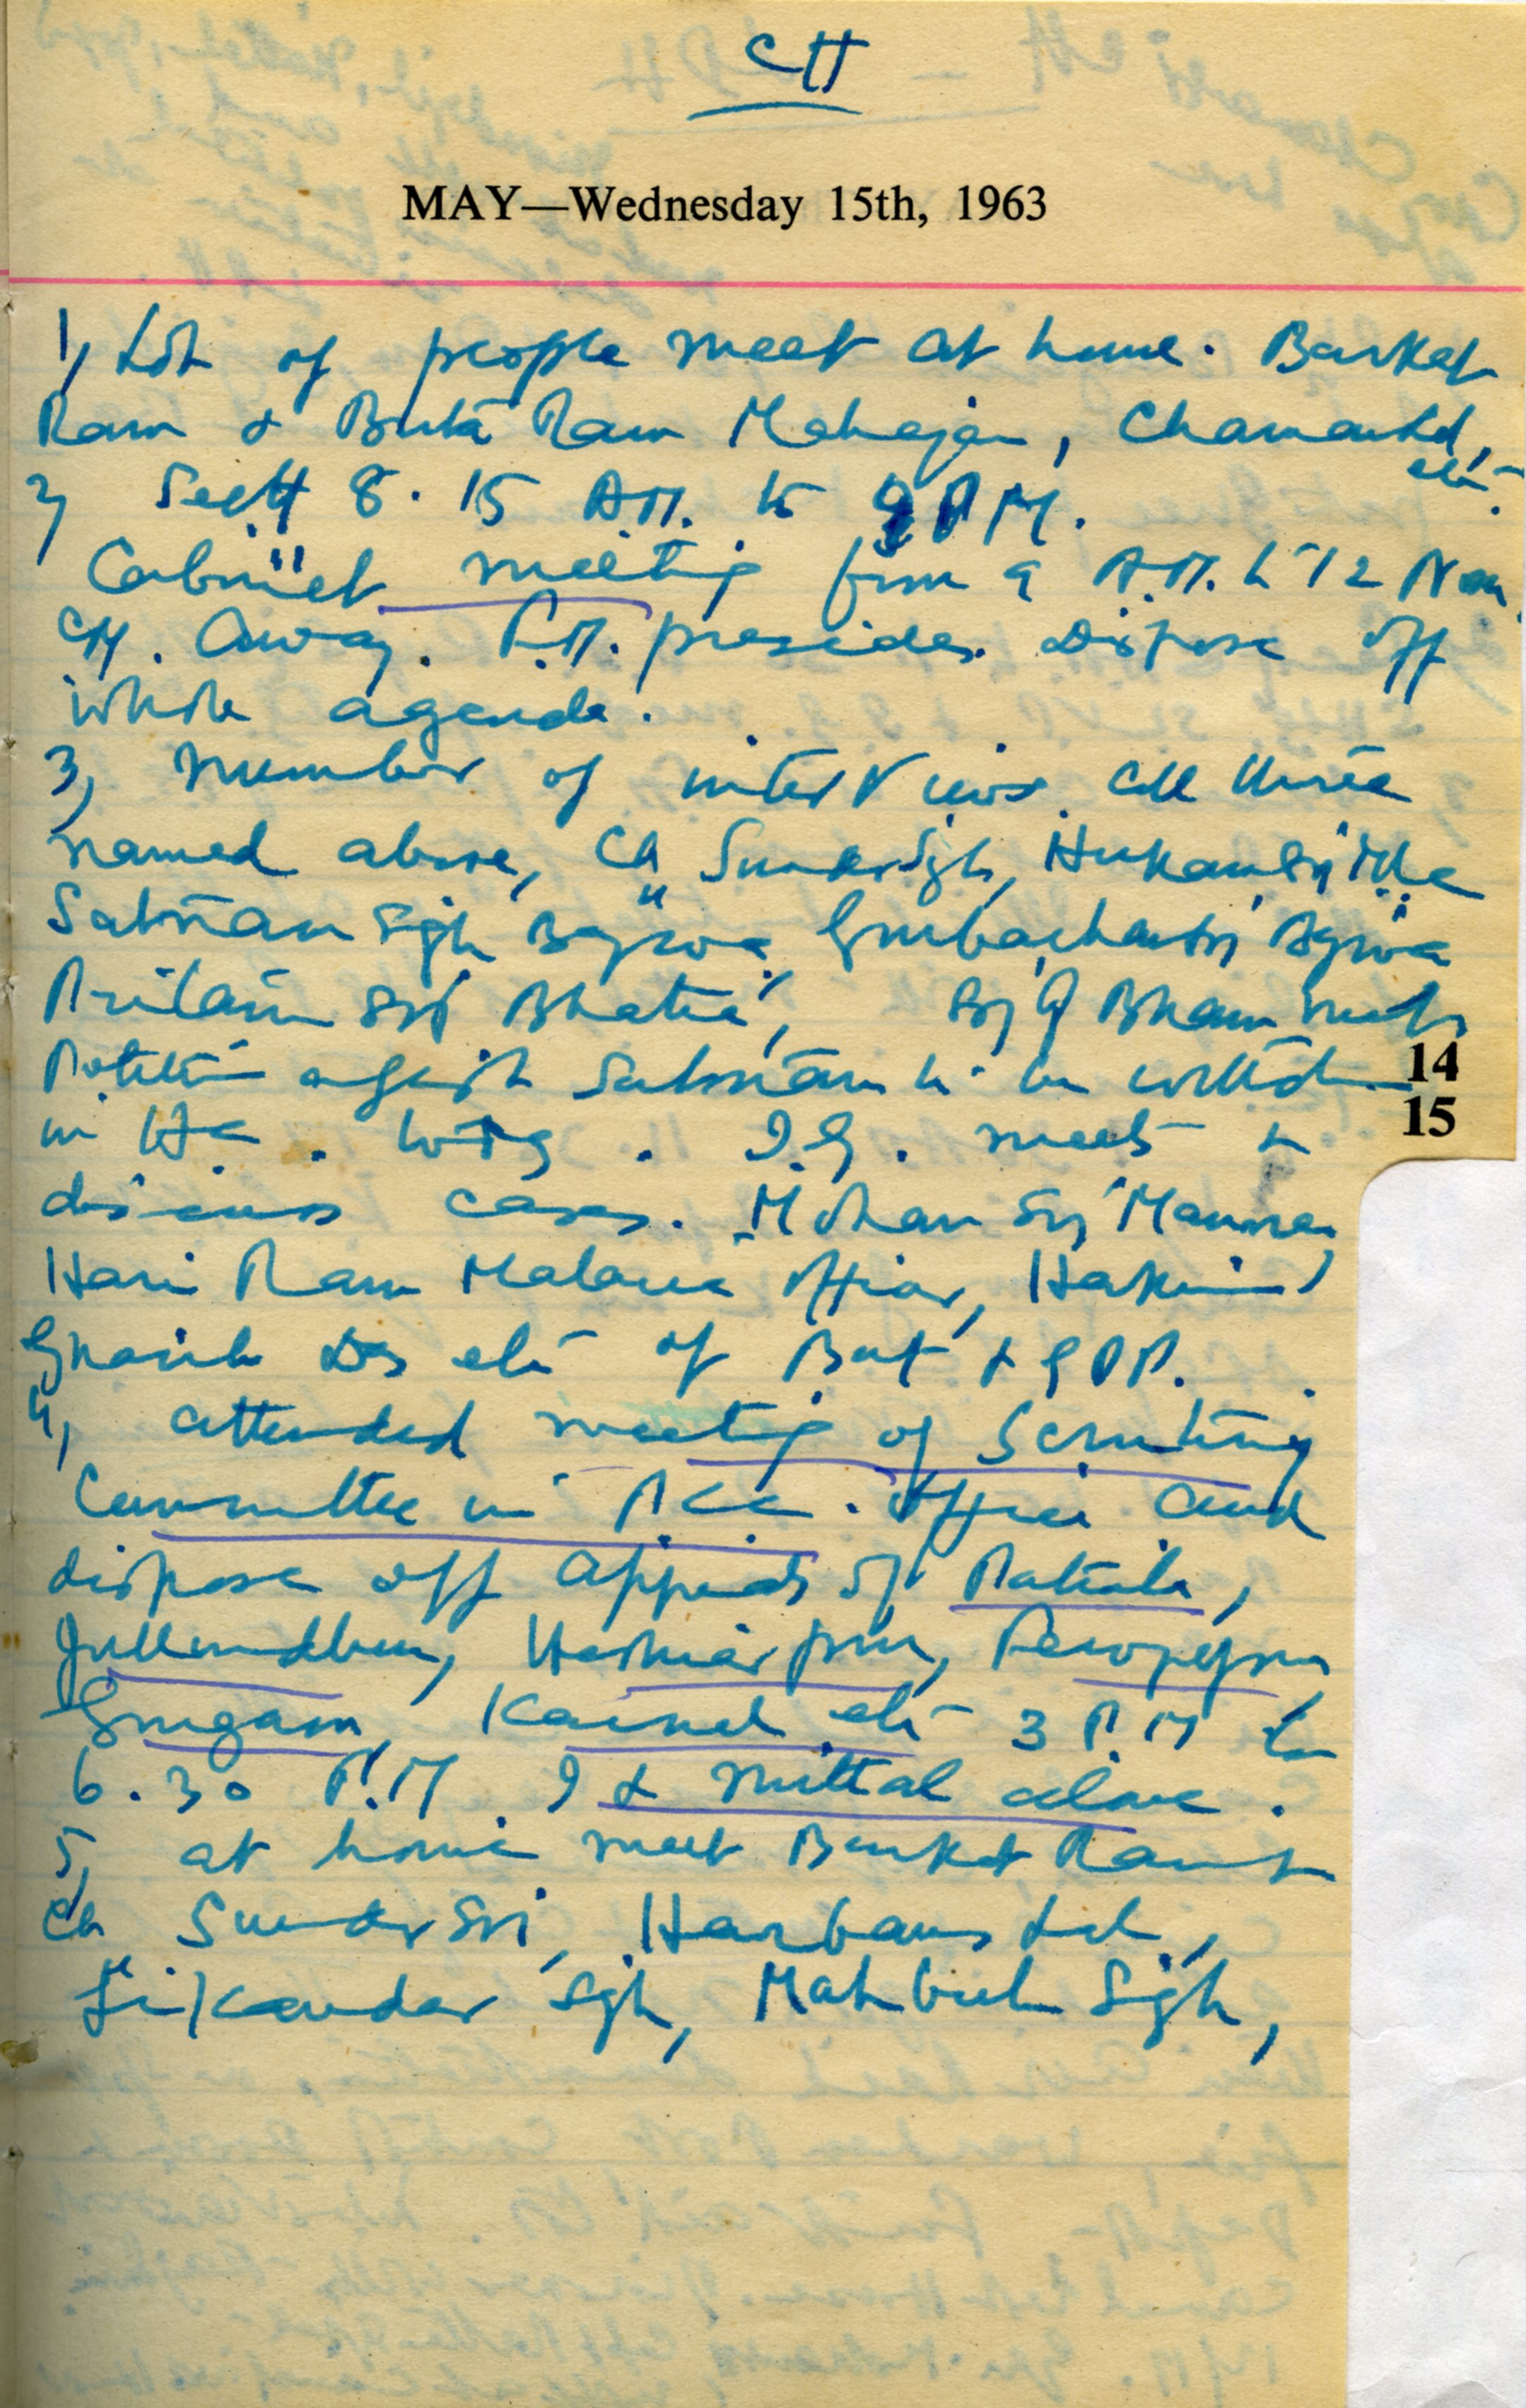 CH
MAY—Wednesday 15th, 1963
1, Lot of people meet at home. Barkat
Ram & Buta Ram Mahajan, Chamanlal,
etc.
2, Sectt 8.15 A.M. to 2 P.M.
Cabinet meeting from 9 A.M. to 12 Noon
CM. Away. F.M. presides. Dispose off
whole agenda.
3, Number of interviews. All three
named above, Ch Sundersgh, Hukam Sgh
Satnam Sgh Bajwa, Gurbachan Sgh Bajwa
Pritam Sgh Bhatia, meets
Petition against Satnam to be
in H.C. I.G. meets &
discuss cases. Mohan Sgh
Hari Ram Malaria Officer, Hakim
Das etc of Bat & GDP.
4, attended meeting of Scrutiny
Committee in PCC. Office and
dispose off appeals of Patiala,
Jullundhur, Hoshiarpur, Ferozepur,
Gurgaon, Karnal etc 3 P.M to
6.30 P.M. I & Mittal alone.
5, at home meet Barkat Ram &
Ch Sunder Sgh, Harbans Lal,
Sikander Sgh, Mohinder Sgh,
14
15